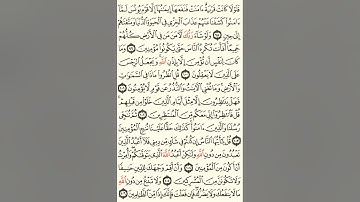 فَلَوْلَا كَانَتْ قَرْيَةٌ ءَامَنَتْ فَنَفَعَهَآ إِيمَٰنُهَآ إِلَّا قَوْمَ يُونُسَ لَمَّآ
ءَامَنُوا۟ كَشَفْنَا عَنْهُمْ عَذَابَ ٱلْخِزْىِ فِى ٱلْحَيَوٰةِ ٱلدُّنْيَا وَمَتَّعْنَٰهُمْ
إِلَىٰ حِينٍ ٩٨ وَلَوْ شَآءَ رَبُّكَ لَءَامَنَ مَن فِى ٱلْأَرْضِ كُلُّهُمْ
جَمِيعًا أَفَأَنتَ تُكْرِهُ ٱلنَّاسَ حَتَّىٰ يَكُونُوا۟ مُؤْمِنِينَ ٩٩ وَمَا
كَانَ لِنَفْسٍ أَن تُؤْمِنَ إِلَّا بِإِذْنِ ٱللَّهِ وَيَجْعَلُ ٱلرِّجْسَ
عَلَى ٱلَّذِينَ لَا يَعْقِلُونَ ١٠٠ قُلِ ٱنظُرُوا۟ مَاذَا فِى ٱلسَّمَٰوَٰتِ
وَٱلْأَرْضِ وَمَا تُغْنِى ٱلْءَايَٰتُ وَٱلنُّذُرُ عَن قَوْمٍ لَّا يُؤْمِنُونَ ١٠١
فَهَلْ يَنتَظِرُونَ إِلَّا مِثْلَ أَيَّامِ ٱلَّذِينَ خَلَوْا۟ مِن قَبْلِهِمْ
قُلْ فَٱنتَظِرُوٓا۟ إِنِّى مَعَكُم مِّنَ ٱلْمُنتَظِرِينَ ١٠٢ ثُمَّ نُنَجِّى
رُسُلَنَا وَٱلَّذِينَ ءَامَنُوا۟ كَذَٰلِكَ حَقًّا عَلَيْنَا نُنجِ ٱلْمُؤْمِنِينَ
١٠٣ قُلْ يَٰٓأَيُّهَا ٱلنَّاسُ إِن كُنتُمْ فِى شَكٍّ مِّن دِينِى فَلَآ أَعْبُدُ ٱلَّذِينَ
تَعْبُدُونَ مِن دُونِ ٱللَّهِ وَلَٰكِنْ أَعْبُدُ ٱللَّهَ ٱلَّذِى يَتَوَفَّىٰكُمْ وَأُمِرْتُ
أَنْ أَكُونَ مِنَ ٱلْمُؤْمِنِينَ ١٠٤ وَأَنْ أَقِمْ وَجْهَكَ لِلدِّينِ حَنِيفًا
وَلَا تَكُونَنَّ مِنَ ٱلْمُشْرِكِينَ ١٠٥ وَلَا تَدْعُ مِن دُونِ ٱللَّهِ
مَا لَا يَنفَعُكَ وَلَا يَضُرُّكَ فَإِن فَعَلْتَ فَإِنَّكَ إِذًا مِّنَ ٱلظَّٰلِمِينَ ١٠٦